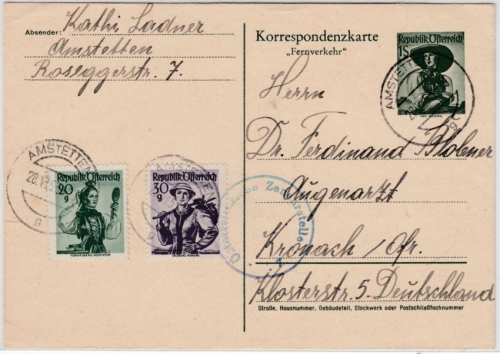 Absender: Kathi Ladner
Amstetten
Roseggerstr. 7.
Korrespondenzkarte
"Fernverkehr"
1S Republik Österreich
AMSTETTEN
Herrn
Dr. Ferdinand
Augenarzt
Kronach / Ofr.
Klosterstr. 5. Deutschland
Straße, Hausnummer, Gebäudeteil, Stockwerk oder Postschließfachnummer
AMSTETTEN
28.
g
Republik Österreich
20
g
AMSTETTEN
Republik Österreich
30
g
Zensurstelle